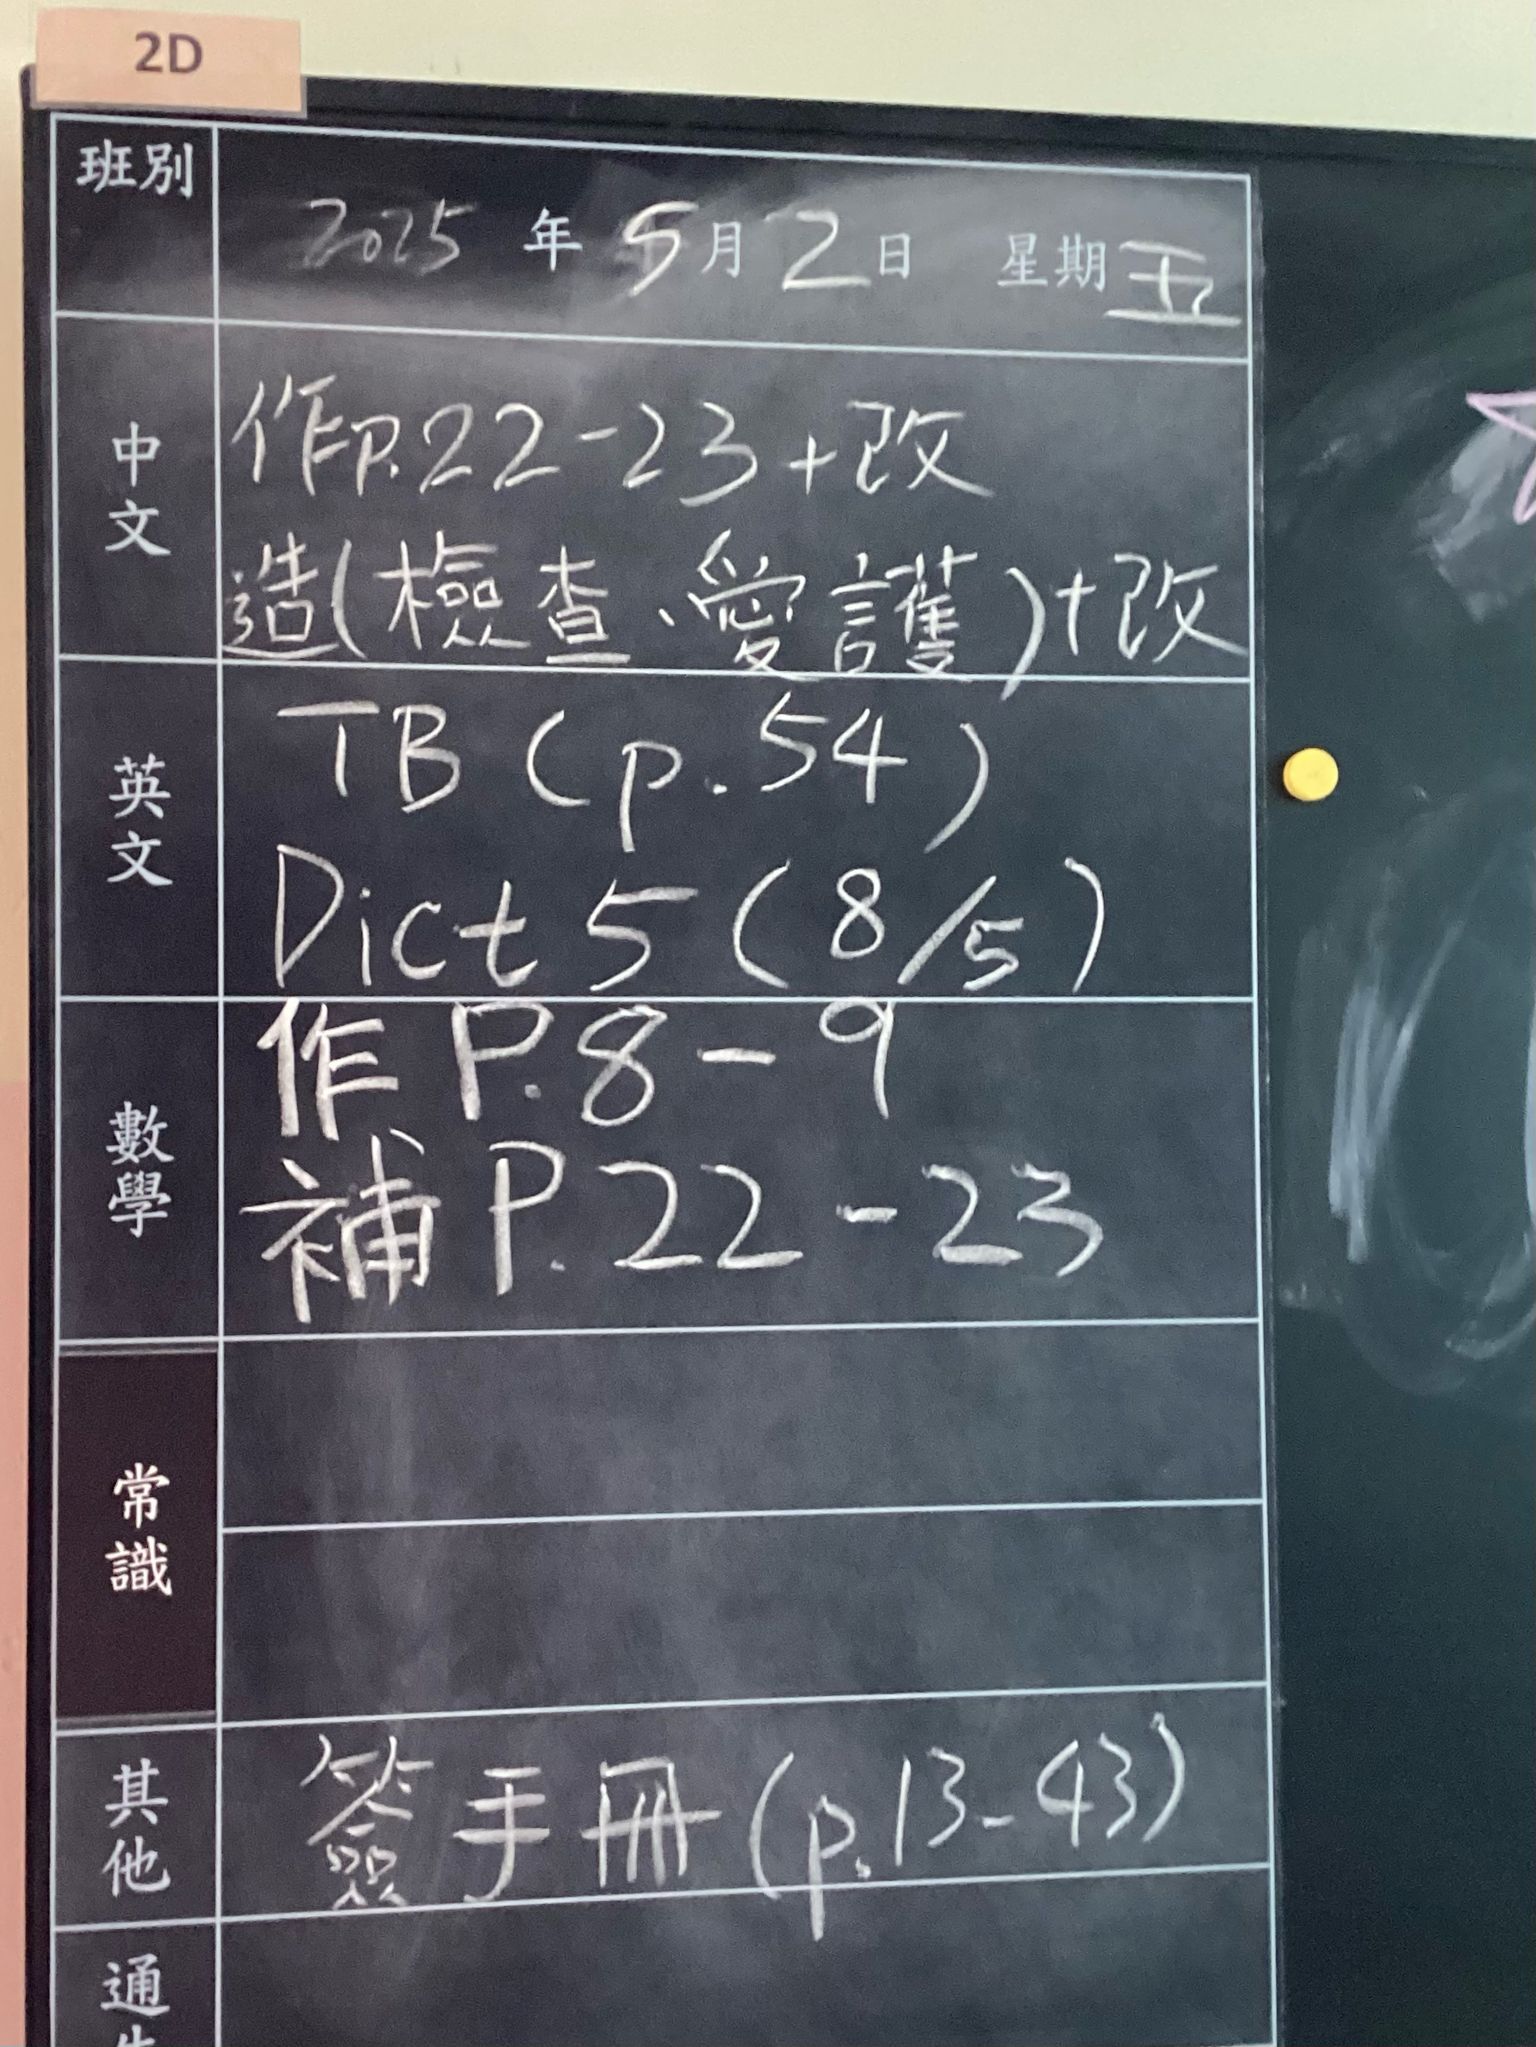 2D
班別
2025 年 5 月 2 日 星期 五
中文
作P.22-23+改
造(檢查、愛護)+改
英文
TB (p.54)
Dict 5 (8/5)
數學
作 P.8-9
補 P.22-23
常識
其他
簽手冊(p.13-43)
通